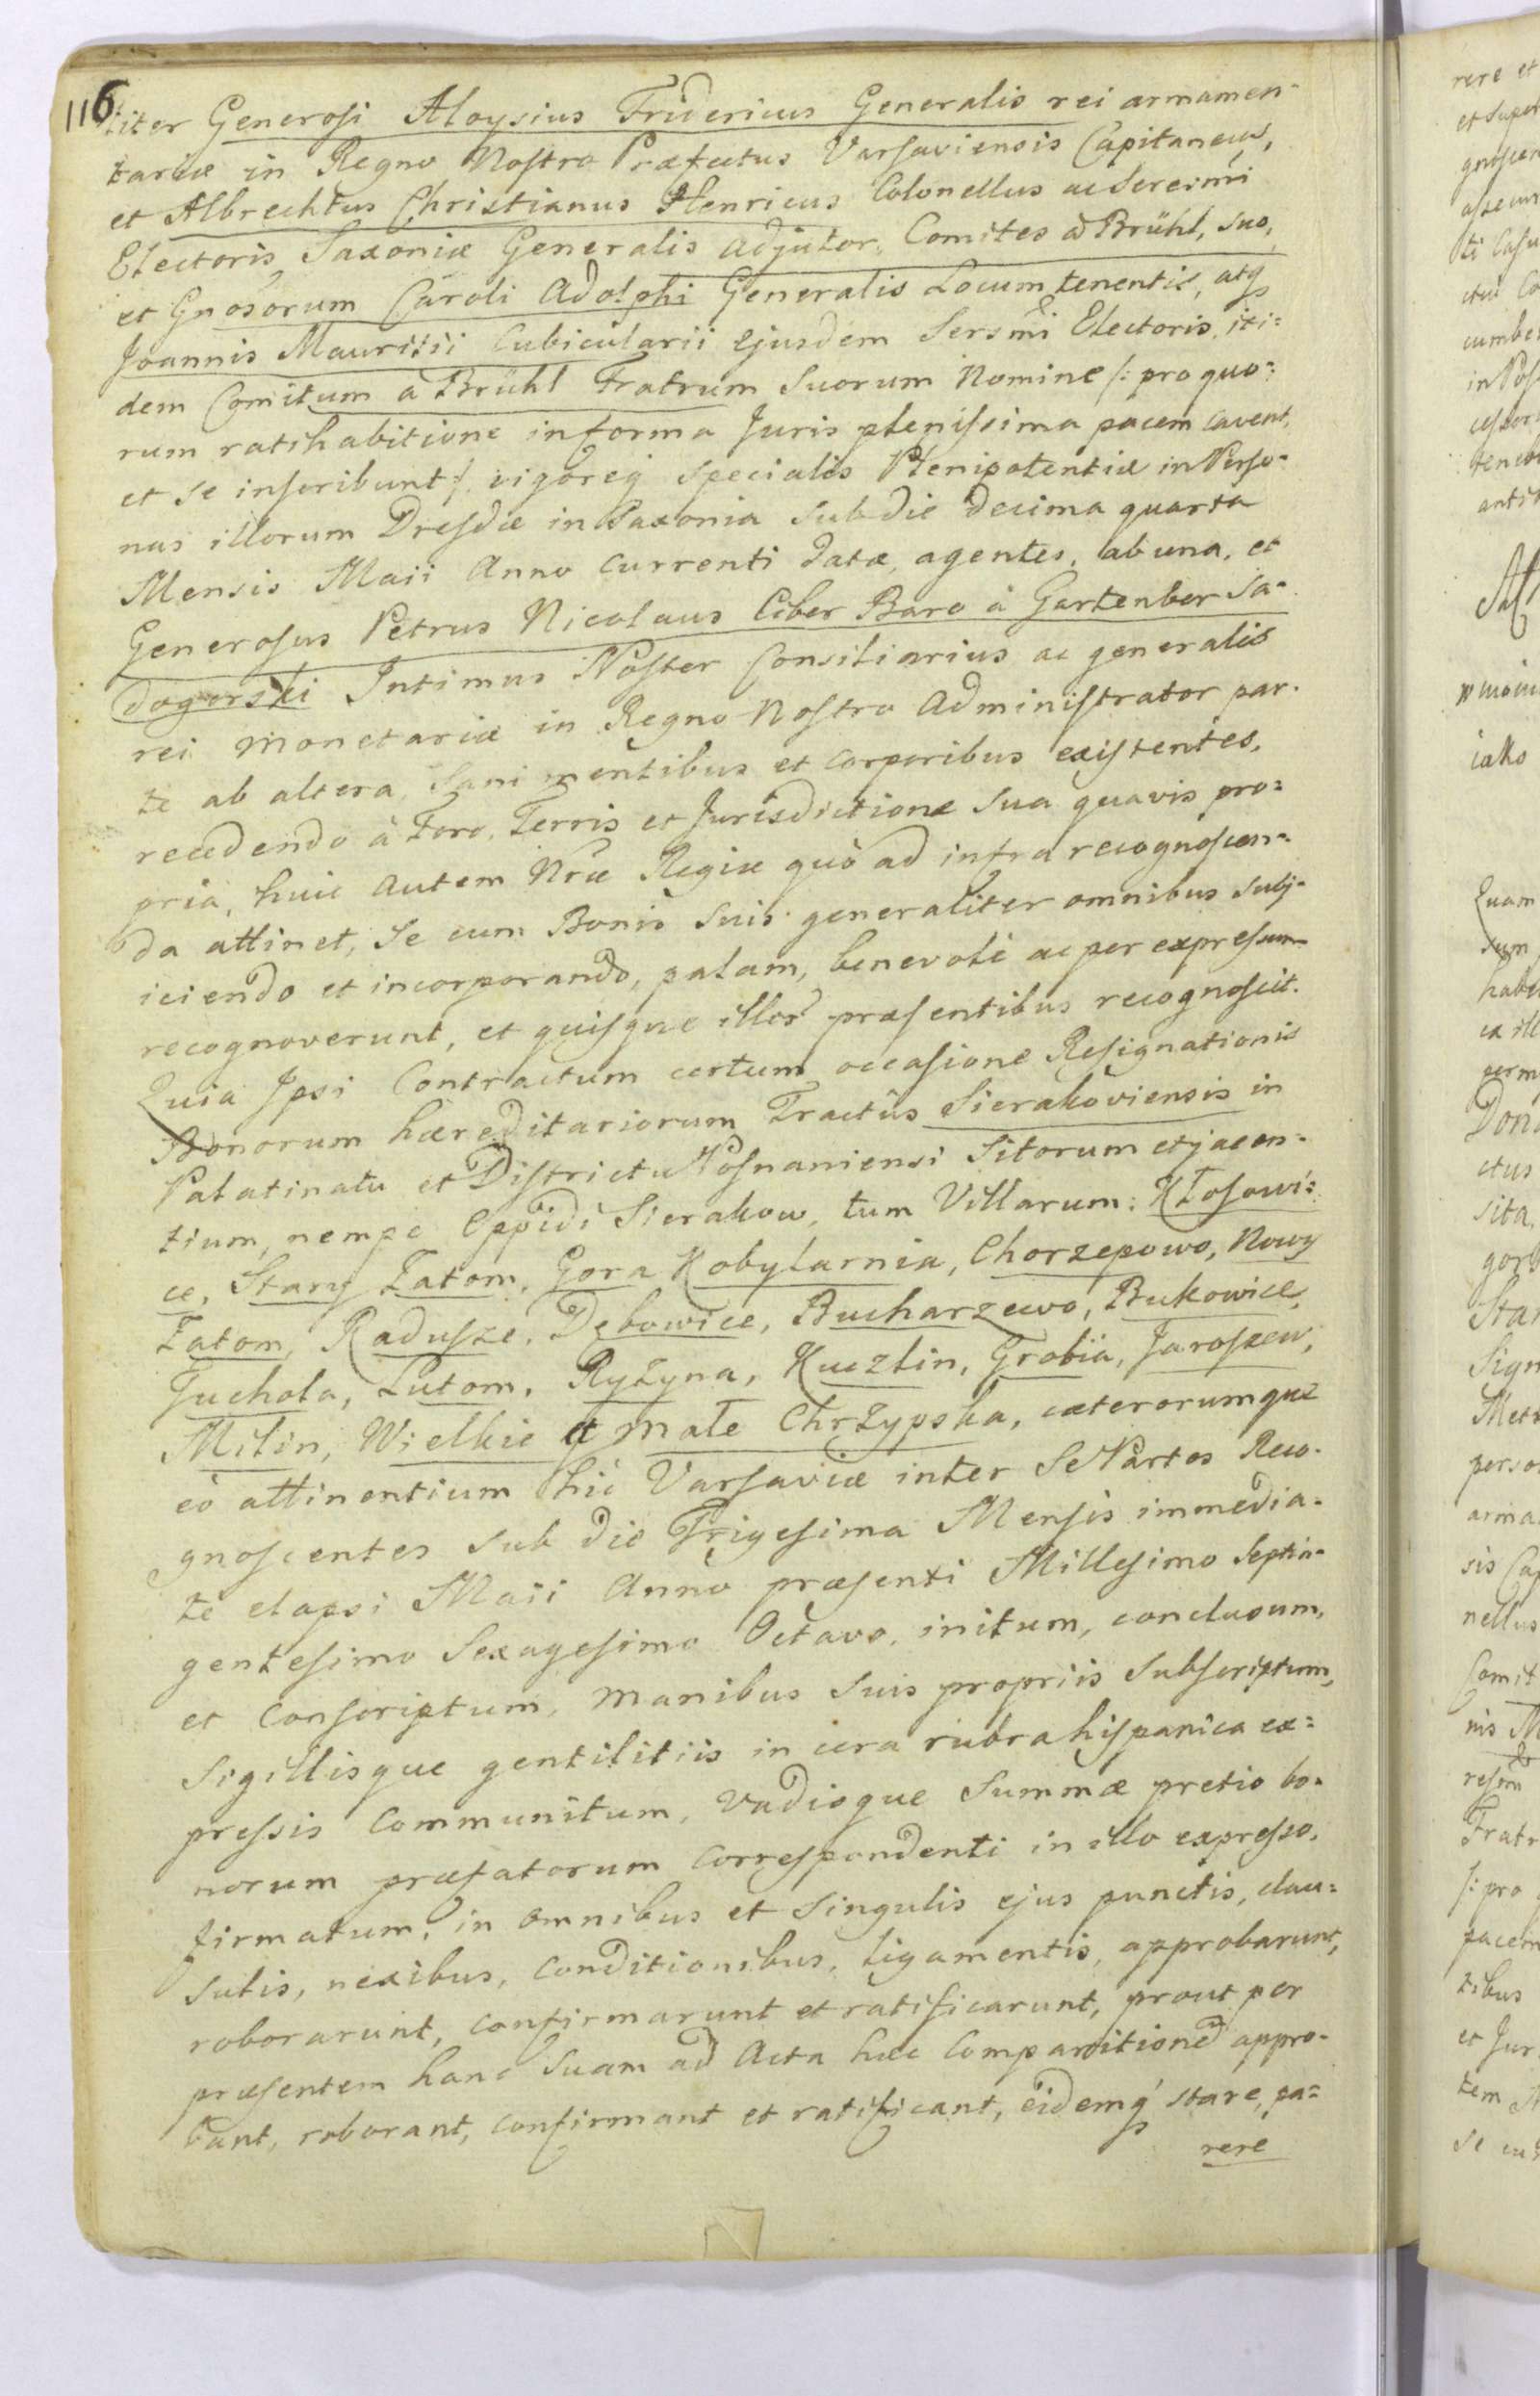 116
titer Generosi Aloysius Fridericus Generalis rei armamen-
tariæ in Regno Nostro Præfectus Varsaviensis Capitaneus,
et Albrechtus Christianus Henricus Colonellus ac Serenmi
Electoris Saxoniæ Generalis Adjutor, Comites a Brühl, suo,
et Gnosorum Caroli Adolphi Generalis Locum tenentis, atq
Joannis Mauritii Cubicularii Ejusdem Sersmi Electoris, iti=
dem Comitum à Brühl Fratrum Suorum Nomine /: pro quo=
rum ratihabitione in forma Juris plenissima pacem cavent,
et se inscribunt :/ vigoreq specialis Plenipotentiæ in Perso-
nas illorum Dresdæ in Saxonia sub die decima quarta
Mensis Maii Anno Currenti datæ, agentes, ab una, et
Generosus Petrus Nicolaus Liber Baro à Gartenber Sa-
dogorski Intimus Noster Consiliarius ac generalis
rei monetariæ in Regno Nostro Administrator par-
te ab altera, Sani mentibus et corporibus existentes,
recedendo à Foro, Terris et Jurisdictione sua quavis pro=
pria, huic autem Nræ Regiæ quò ad infra recognoscen-
da attinet, se cum Bonis suis generaliter omnibus subj-
iciendo et incorporando, palam, benevolè ac per expressum
recognoverunt, et quisque illor præsentibus recognoscit.
Quia Ipsi Contractum certum occasione Resignationis
Bonorum hæreditariorum Tractûs Sierakoviensis in
Palatinatu et Districtu Posnaniensi Sitorum et jacen-
tium, nempe Oppidi Sierakow, tum Villarum: Kłosowi=
ce, Stary Zatom, Gora Kobylarnia, Chorzepowo, Nowy
Zatom, Radusze, Dębowice, Bucharzewo, Bukowice,
Tuchola, Lutom, Ryżyna, Kuczlin, Grobia, Jaroszew,
Milin, Wielkie et małe Chrzypska, cæterorumque
eò attinentium hic Varsaviæ inter Se Partes Reco-
gnoscentes sub die Trigesima Mensis immedia-
tè elapsi Maii Anno præsenti Millesimo Septin-
gentesimo Sexagesimo Octavo, initum, conclusum,
et Conscriptum, manibus suis propriis subscriptum,
Sigillisque gentilitiis in cera rubra hispanica ex=
pressis Communitum, Vadioque Summæ pretio bo-
norum præfatorum Correspondenti in illo expresso,
firmatum, in omnibus et singulis ejus punctis, clau=
sulis, nexibus, conditionibus, ligamentis, approbarunt,
roborarunt, confirmarunt et ratificarunt, prout per
præsentem hanc suam ad Acta hæc Comparitione appro-
bant, roborant, confirmant et ratificant, eidemq stare, pa=
rere